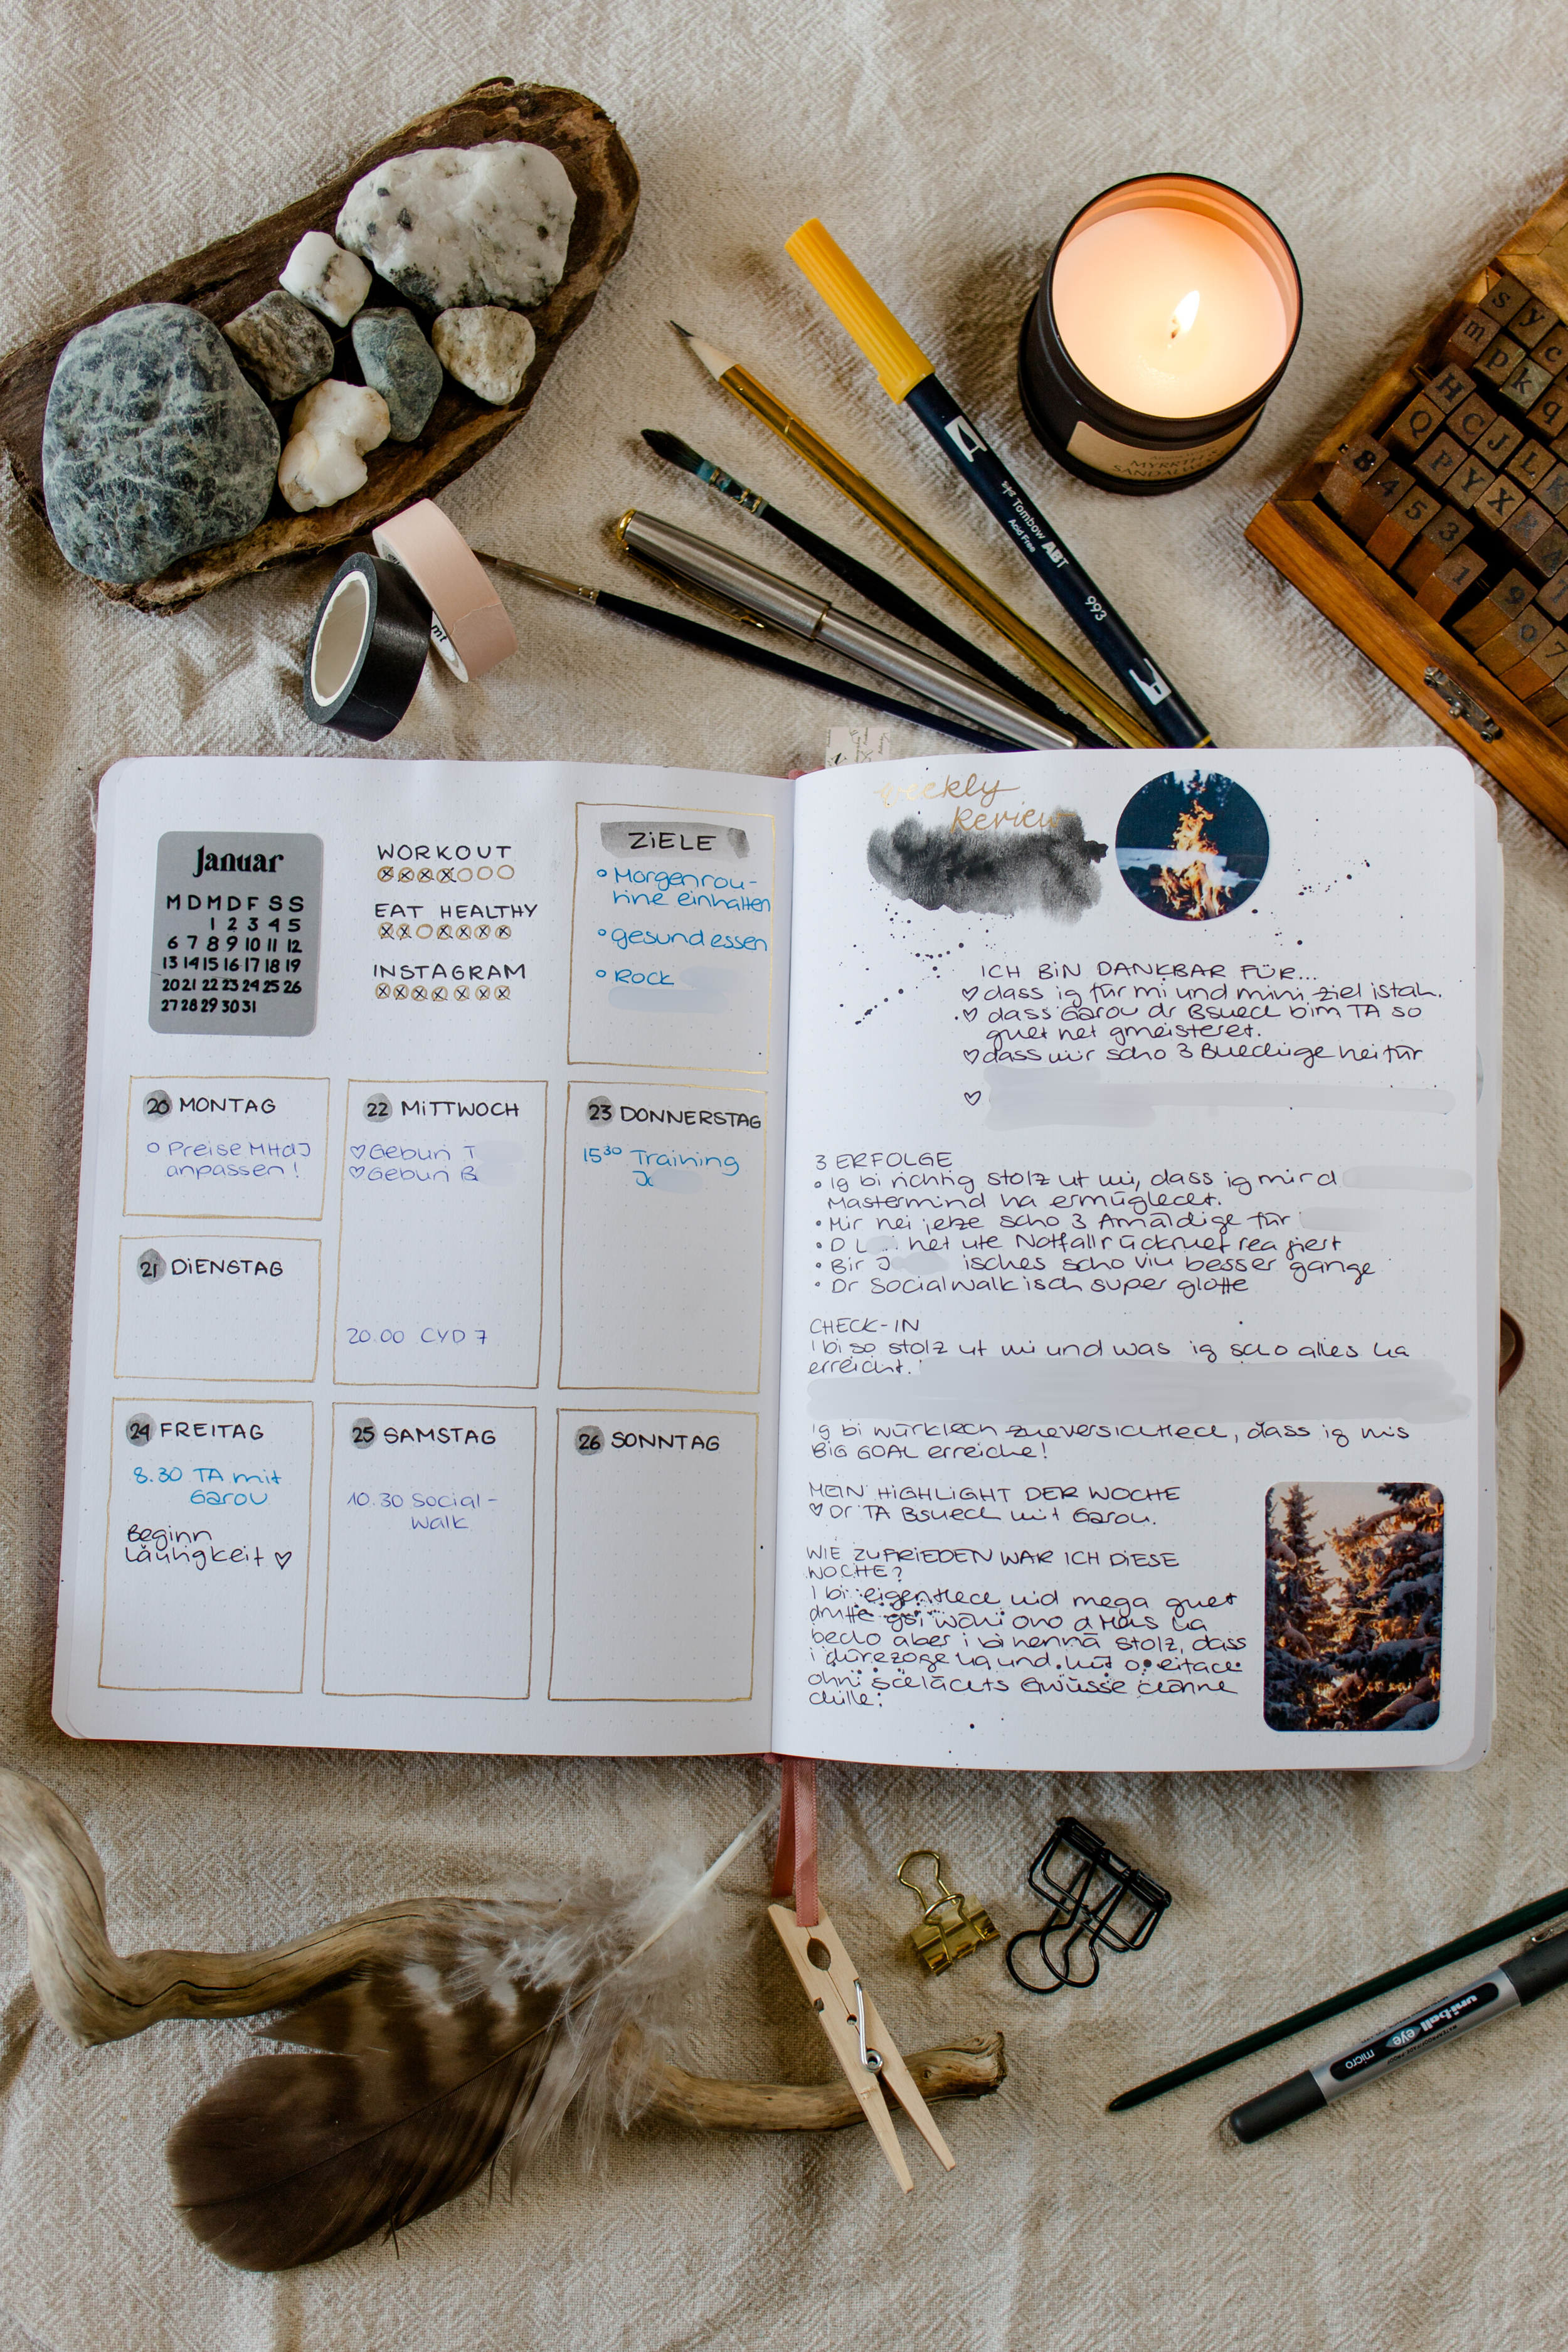 MYRRTH &
SANDALW
Tombow ABT
Acid Free
993
mt
s y
m p c
k q
H C J L
Q P Y X
8 4 5 3 1 9 0 7
Januar
M D M D F S S
1 2 3 4 5
6 7 8 9 10 11 12
13 14 15 16 17 18 19
20 21 22 23 24 25 26
27 28 29 30 31
WORKOUT
EAT HEALTHY
INSTAGRAM
ZiELE
Morgenrou-
tine einhalten
gesund essen
Rock
20 MONTAG
Preise MHdJ
anpassen!
21 DiENSTAG
22 MiTTWOCH
Geburi T
Geburi B
20.00 CYD 7
23 DONNERSTAG
15³⁰ Training
J
24 FREiTAG
8.30 TA mit
Garou
Beginn
Läufigkeit ♡
25 SAMSTAG
10.30 Social-
Walk
26 SONNTAG
weekly
Review
iCH BiN DANKBAR FÜR...
♡ dass ig für mi und mini Ziel istah.
♡ dass Garou dr Bsuech bim TA so
guet het gmeisteret.
♡ dass mir scho 3 Buechige hei für
♡
3 ERFOLGE
• Ig bi richtig stolz uf mi, dass ig mir d
Mastermind ha ermüglecht.
• Mir hei jetze scho 3 Amäldige für
• D L het ute Notfallrückruef reagiert
• Bir J isches scho viu besser gange
• Dr Socialwalk isch super gloffe
CHECK-IN
I bi so stolz uf mi und was ig scho alles ha
erreicht.
Ig bi würklech zueversichtlech, dass ig mis
BiG GOAL erreiche!
MEiN HiGHLiGHT DER WOCHE
♡ Dr TA Bsuech mit Garou.
WiE ZUFRiEDEN WAR iCH DiESE
WOCHE?
I bi eigentlech nid mega guet
druffe gsi wäui ono d Mens ha
becho aber i bi henna stolz, dass
i dürezoge ha und
ohni schlächts Gwüsse chönne
chille.
uni-ball eye
micro